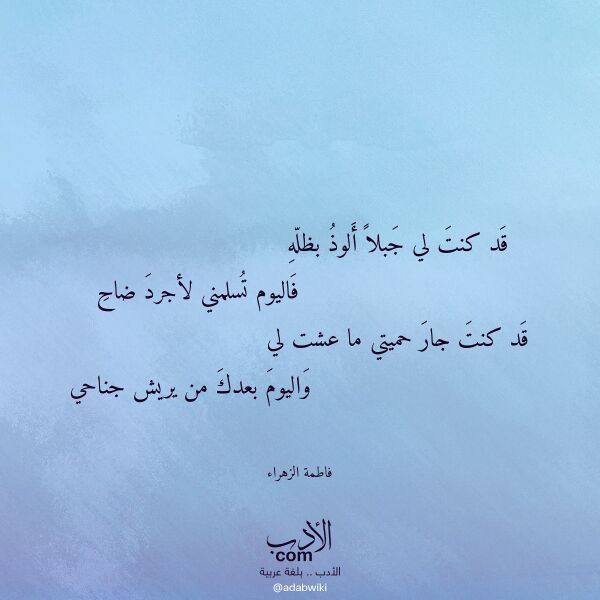 قَد كنتَ لي جَبلاً أَلوذُ بظلّهِ
فَاليوم تُسلمني لأجردَ ضاحِ
قَد كنتَ جارَ حميتي ما عشت لي
وَاليومَ بعدكَ من يريش جناحي
فاطمة الزهراء
الأدب
com
الأدب .. بلغة عربية
@adabwiki